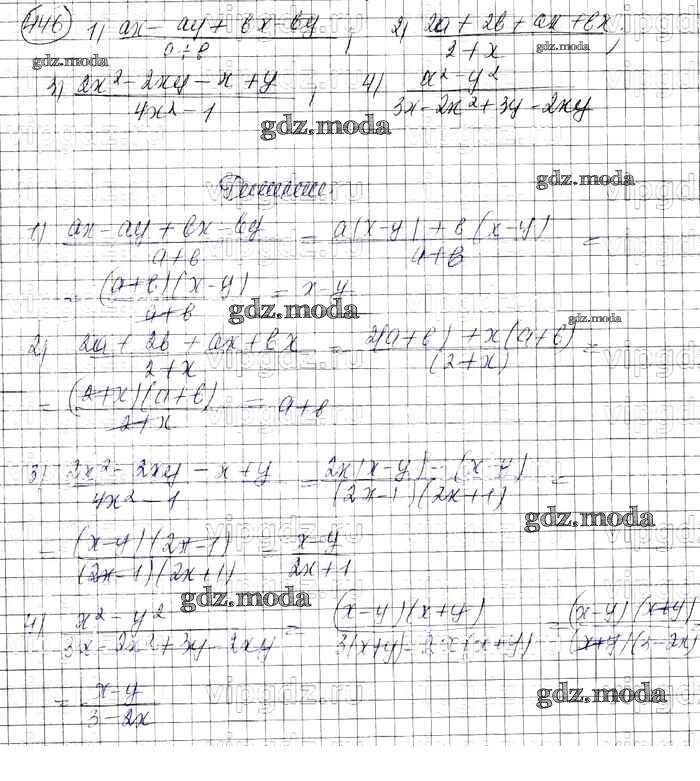 446) 1) ax - ay + bx - by / a + b ; 2) 2a + 2b + ax + bx / 2 + x ;
gdz.moda gdz.moda
3) 2x² - 2xy - x + y / 4x² - 1 ; 4) x² - y² / 3x - 2x² + 3y - 2xy
gdz.moda
Решение: gdz.moda
1) ax - ay + bx - by / a + b = a(x-y) + b(x-y) / a + b =
= (a+b)(x-y) / a + b = x-y
gdz.moda gdz.moda
2) 2a + 2b + ax + bx / 2 + x = 2(a+b) + x(a+b) / (2+x) =
= (2+x)(a+b) / 2+x = a+b
3) 2x² - 2xy - x + y / 4x² - 1 = 2x(x-y) - (x-y) / (2x-1)(2x+1) =
gdz.moda
= (x-y)(2x-1) / (2x-1)(2x+1) = x-y / 2x+1
gdz.moda
4) x² - y² / 3x - 2x² + 3y - 2xy = (x-y)(x+y) / 3(x+y) - 2x(x+y) = (x-y)(x+y) / (x+y)(3-2x)
= x-y / 3-2x
gdz.moda
vipgdz.ru